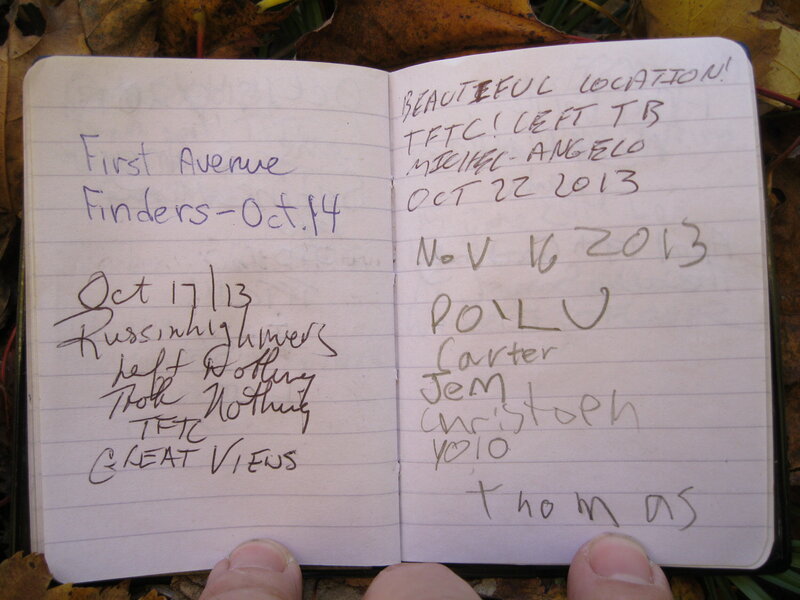 First Avenue
Finders-Oct.14
Oct 17/13
Left Nothing
Took Nothing
TFTC
GREAT VIEWS
BEAUTIFUL LOCATION!
TFTC! LEFT TB
MICHEL-ANGELO
OCT 22 2013
Nov 16 2013
POILU
Carter
Jem
Christoph
YOlO
Thomas